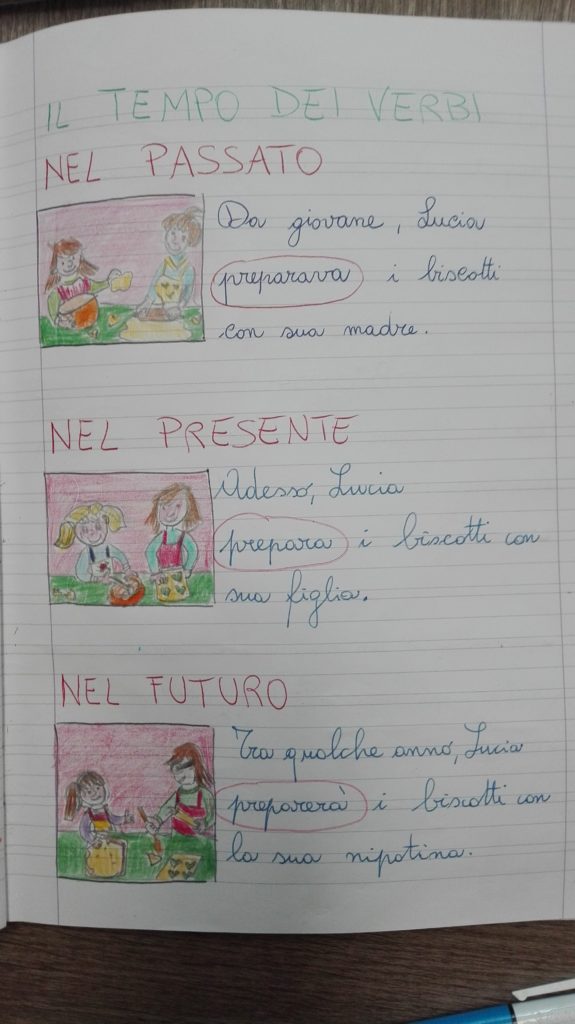 IL TEMPO DEI VERBI
NEL PASSATO
Da giovane, Lucia
preparava i biscotti
con sua madre.
NEL PRESENTE
Adesso, Lucia
prepara i biscotti con
sua figlia.
NEL FUTURO
Tra qualche anno, Lucia
preparerà i biscotti con
la sua nipotina.